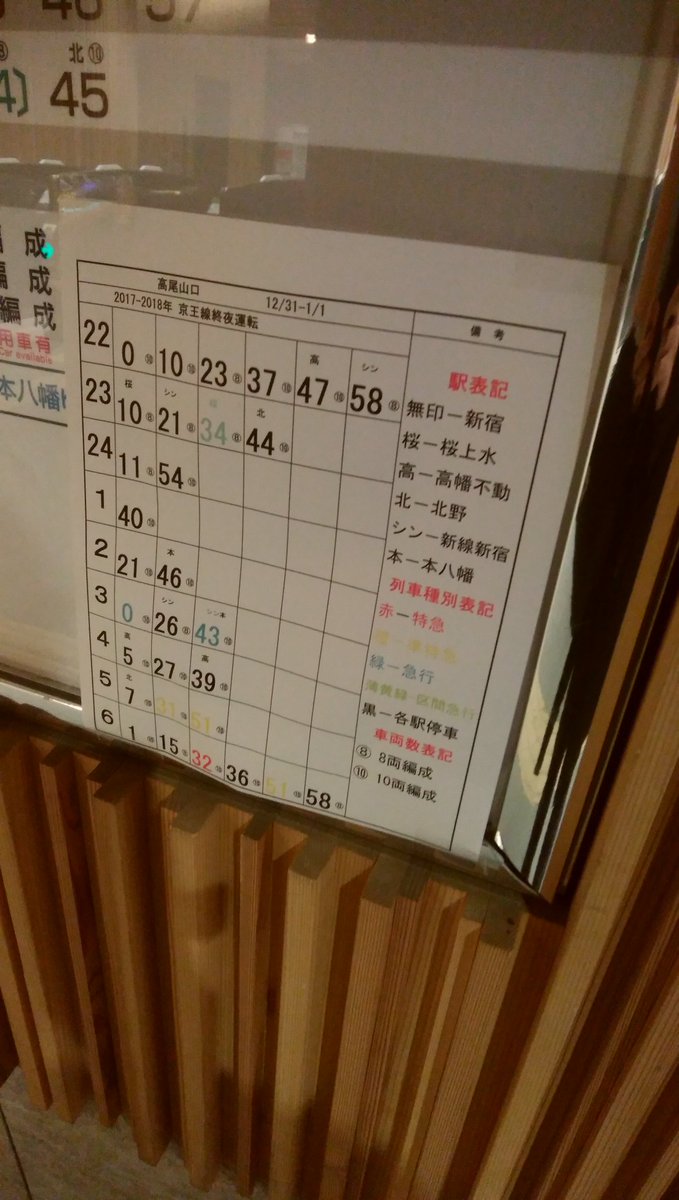 北⑩
45
成
編成
編成
用車有
Car available
本八幡
高尾山口 12/31-1/1
2017-2018年 京王線終夜運転
備考
高 シン
22 0⑩ 10⑩ 23⑧ 37⑩ 47⑩ 58⑧
桜 シン 桜 北
23 10⑧ 21⑧ 34⑧ 44⑩
24 11⑧ 54⑩
1 40⑩
本
2 21⑩ 46⑩
シン シン本
3 0⑩ 26⑧ 43⑩
高 高
4 5⑩ 27⑩ 39⑩
北
5 7⑩ 31⑩ 51⑩
6 1 15 32⑩ 36⑩ 51⑩ 58⑧
駅表記
無印ー新宿
桜ー桜上水
高ー高幡不動
北ー北野
シンー新線新宿
本ー本八幡
列車種別表記
赤ー特急
橙ー準特急
緑ー急行
薄黄緑-区間急行
黒ー各駅停車
車両数表記
⑧ 8両編成
⑩ 10両編成